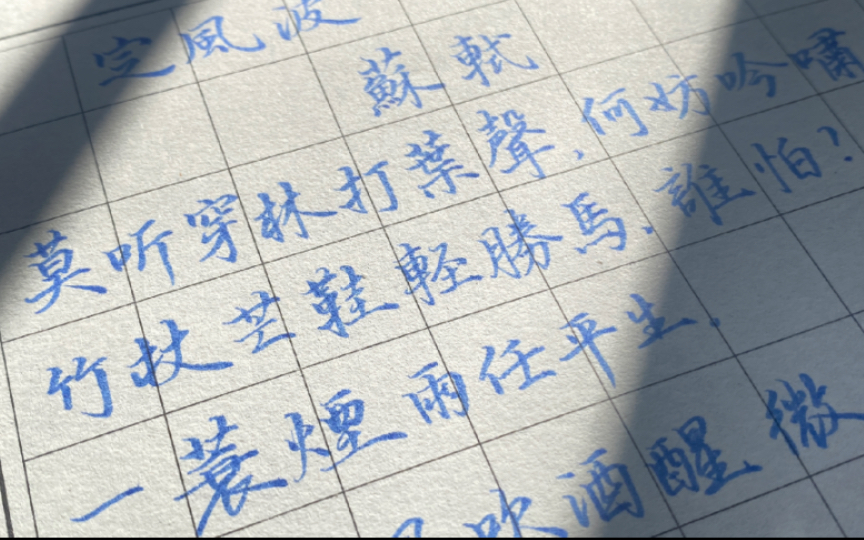 定風波
蘇軾
莫听穿林打葉聲,何妨吟嘯
竹杖芒鞋軽勝馬,誰怕?
一蓑煙雨任平生。
吹酒醒微